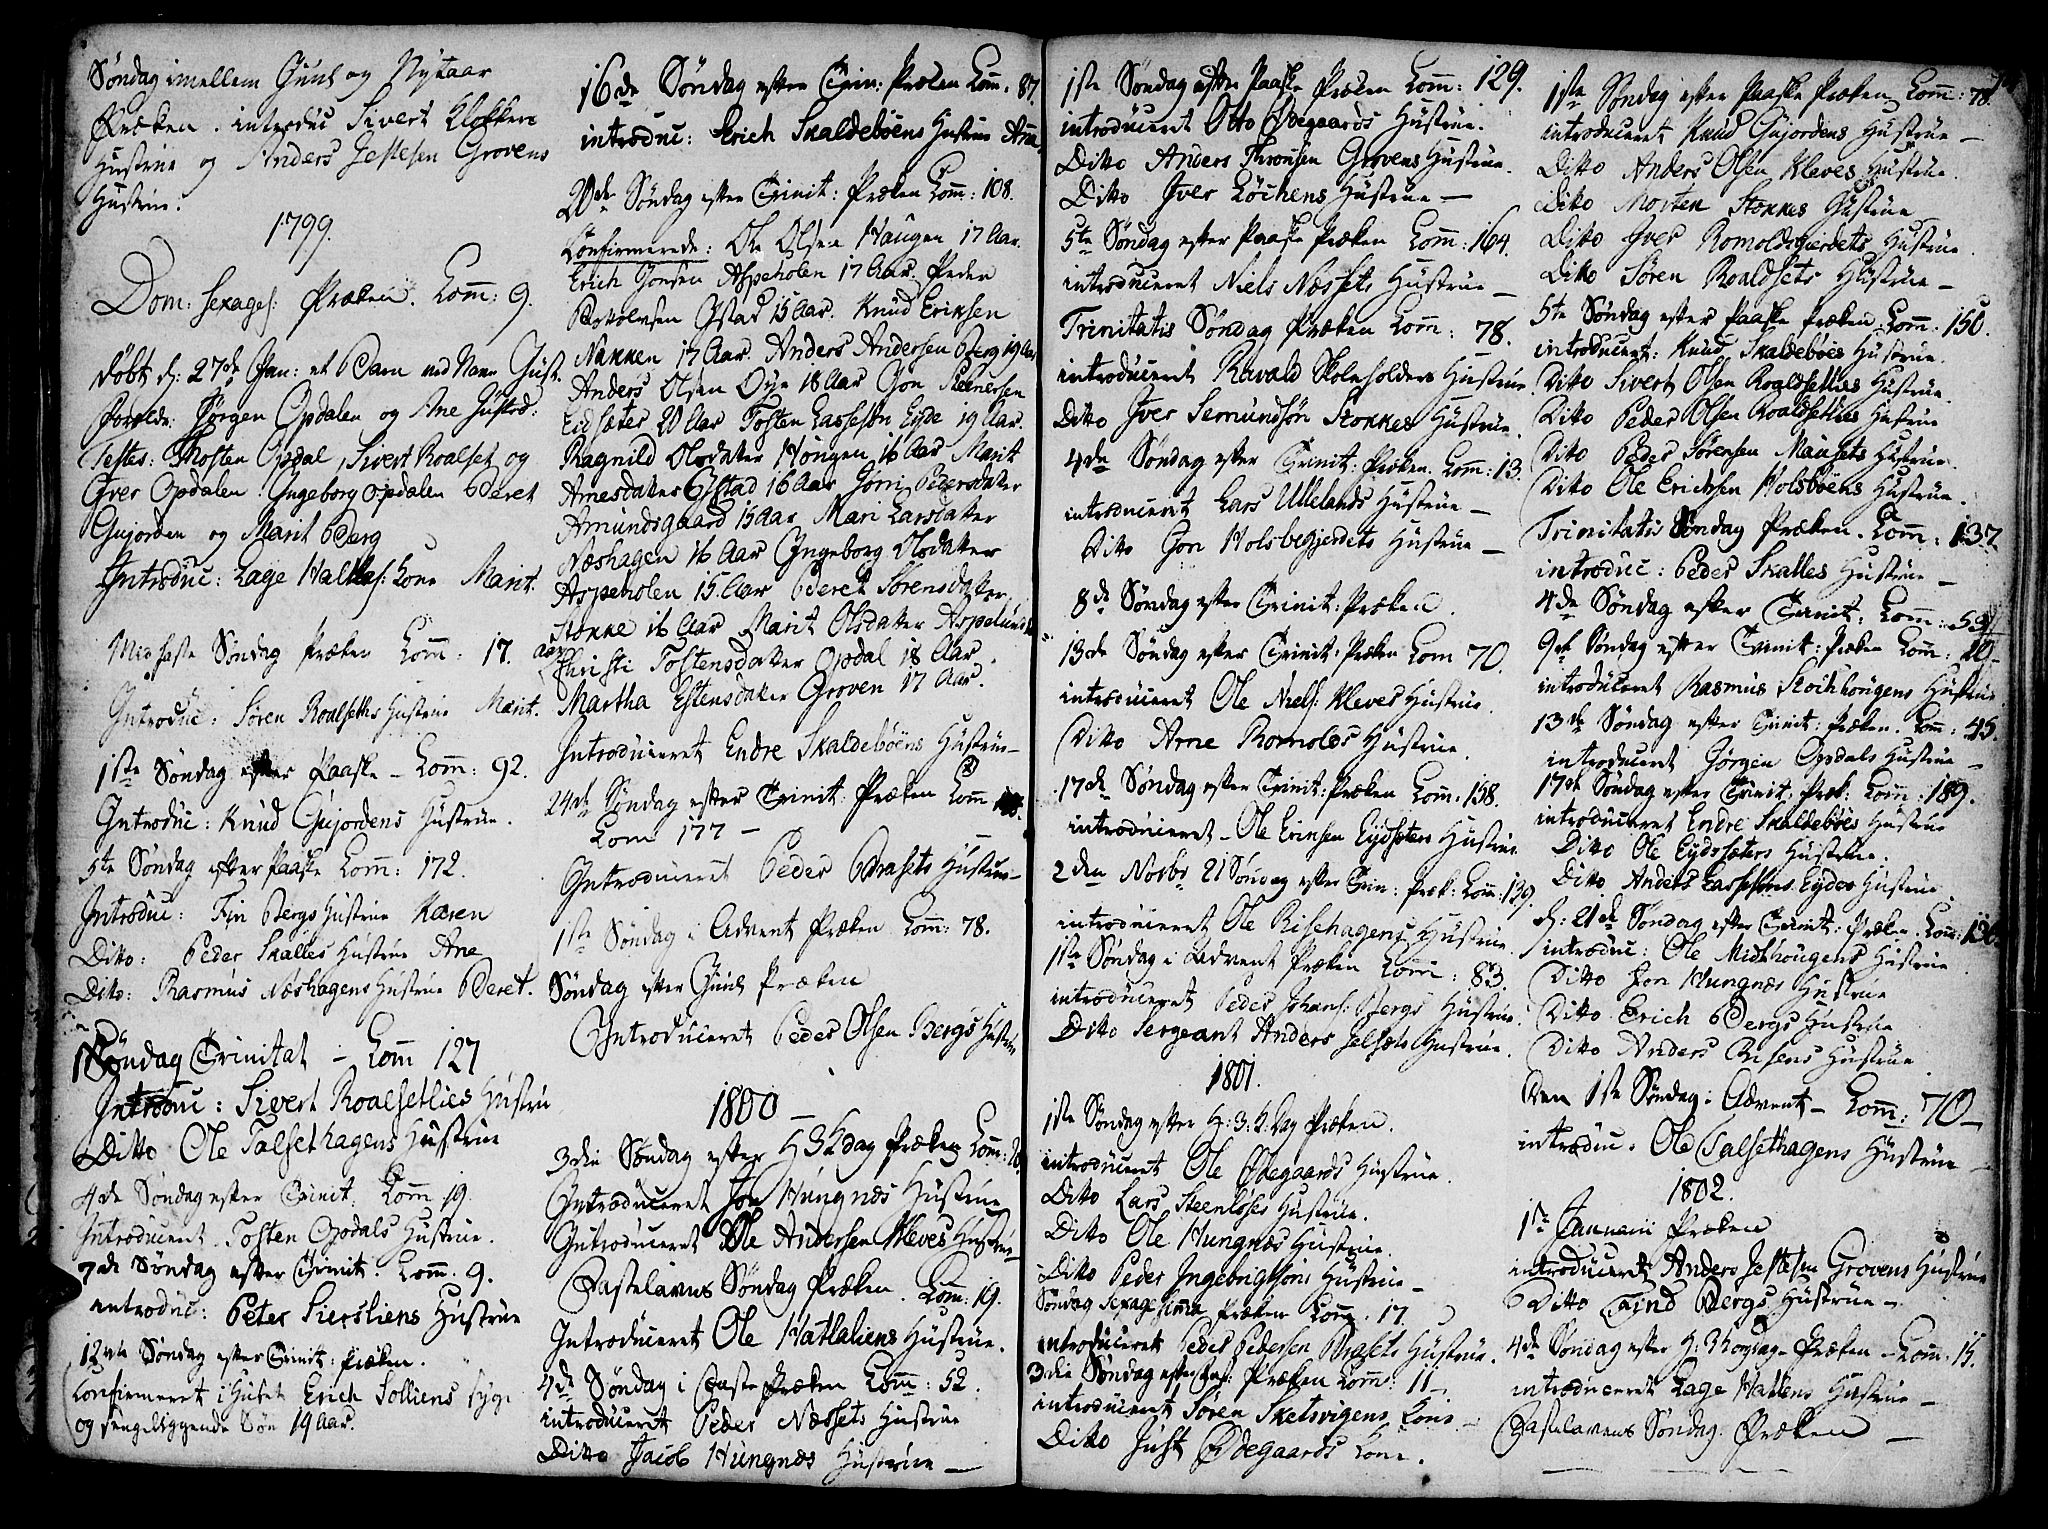 Søndag imellem Juul og Nytaar
Præken. introduc Sivert Klokkers
Hustrue og Anders Jettesen Grovens
Hustrue.
1799.
Dom: Sexages: Præken. Comm: 9.
døbt d: 27de Jan: et Barn ved Navn Just.
Foreldr: Jørgen Opdalen og Ane Justsd:
Testes: Thosten Opdal, Sivert Roalset og
Iver Opdalen. Ingeborg Opdalen Beret
Gujorden og Marit Berg
Introduc: Lage Kone Marit.
Midfaste Søndag Præken Comm: 17.
Introduc: Søren Roalsetlies Hustrue Marit.
1ste Søndag efter Paaske – Comm: 92.
Introduc: Knud Gujordens Hustrue.
5te Søndag efter Paaske Comm: 172.
Introduc: Fin Bergs Hustrue Karen
Ditto: Peder Skalles Hustrue Ane
Ditto: Rasmus Næshagens Hustrue Beret.
Søndag Trinitat – Comm 127
Introduc: Sivert Roalsetlies Hustru
Ditto Ole Talsethagens Hustrue
4de Søndag efter Trinit: Comm 19.
Introduceret Tosten Opdals Hustrue.
7de Søndag efter Trinit: Comm: 9.
introduc: Peter Hustrue
12te Søndag efter Trinit: Præken.
Confirmeret i Huset Erich Solliens syge
og sengeliggende Søn 19 Aar.
16de Søndag efter Trin: Præken Comm: 87.
introduc: Erich Skaldebøens Hustrue Ane
20de Søndag efter Trinit: Præken Comm: 108.
Confirmerede: Ole Olsen Haugen 17 Aar.
Erich Jonsen Aspeholen 17 Aar. Peder
Gstad 15 Aar. Knud Eriksen
Nakken 17 Aar. Anders Andersen Berg 19 Aar
Anders Olsen Øye 18 Aar Jon Steenersen
Eidsæter 20 Aar Tosten Lassesøn Eyde 19 Aar.
Ragnild Olsdatter Hougen 16 Aar Marit
Arnesdatter Gstad 16 Aar Jørri Pedersdatter
Amundsgaard 15 Aar Mari Larsdatter
Næshagen 16 Aar Ingeborg Olsdatter
Aspeholen 15 Aar Beret Sørensdatter
Stokke 16 Aar Marit Olsdatter
Aar Christi Tostensdatter Opdal 18 Aar.
Martha Estensdatter Groven 17 Aar.
Introduceret Endre Skaldebøens Hustrue
24de Søndag efter Trinit: Præken Comm
Com 177 –
Introduceret Peder Brasets Hustrue
1ste Søndag i Advent Præken Comm: 78.
Søndag efter Juul Præken
Introduceret Peder Olsen Bergs Hustrue
1800 –
3die Søndag efter H 3 K dag Præken Comm:
Introduceret Jon Hungnæs Hustrue
Introduceret Ole Andersen Kleves Hustrue
Fastelavns Søndag Præken. Comm: 19.
Introduceret Ole Hatlaliens Hustrue.
4de Søndag i Faste Præken Comm: 52.
introduceret Peder Næssets Hustrue
Ditto Jacob Hungnæs Hustrue –
1ste Søndag efter Paaske Præken Comm: 129.
introduceret Otto Ødegaards Hustrue.
Ditto Anders Thronsen Grovens Hustrue.
Ditto Iver Løchens Hustrue –
5te Søndag efter Paaske Præken Comm: 164.
introduceret Niels Næssets Hustrue –
Trinitatis Søndag Præken Comm: 78.
introduceret Ravald Skoleholders Hustrue
Ditto Iver Semundsøn Stokkes Hustrue.
4de Søndag efter Trinit: Præken. Comm: 13.
introduceret Lars Ullelands Hustrue –
Ditto Jon Holsbøgjerdets Hustrue –
8de Søndag efter Trinit: Præken.
13de Søndag efter Trinit: Præken Com 70.
introduceret Ole Niels: Kleves Hustrue.
Ditto Arne Romolds Hustrue.
17de Søndag efter Trinit: Præken Comm: 158.
introduceret – Ole Eriksen Eydsæters Hustrue
2den Novbr 21 Søndag efter Trin: Præk: Comm: 139.
introduceret Ole Risehagens Hustrue.
1ste Søndag i Advent Præken Comm: 83.
introduceret Peder Johans: Bergs Hustrue.
Ditto Sergeant Anders Hustrue.
1801.
1ste Søndag efter H: 3: K: Dag Præken.
introduceret Ole Ødegaards Hustrue.
Ditto Lars Steenløses Hustrue.
Ditto Ole Hungnæs Hustrue.
Ditto Peder Ingebrigtsøns Hustrue –
Søndag Sexagesima Præken Comm. 17.
introduceret Peder Pedersen Brasets Hustrue.
3die Søndag efter Præken Comm: 11
introduceret Søren Sketsvigens Kone –
Ditto Just Ødegaards Kone.
1ste Søndag efter Paaske Præken Comm: 78.
introduceret Knud Gujordens Hustrue –
Ditto Anders Olsen Kleves Hustrue.
Ditto Morten Stokkes Hustrue
Ditto Iver Romoldsgierdets Hustrue.
Ditto Søren Roaldsets Hustrue –
5te Søndag efter Paaske Præken Comm: 150.
introduceret: Knud Skaldebøes Hustrue.
Ditto Sivert Olsen Roaldsetlies Hustrue.
Ditto Peder Olsen Roaldsetlies Hustrue
Ditto Peder Sørensen Mausets Hustrue.
Ditto Ole Erichsen Holsbøens Hustrue.
Trinitatis Søndag Præken. Comm: 137
introduc: Peder Skalles Hustrue –
4de Søndag efter Trinit: Comm:
9de Søndag efter Trinit: Præken Comm: 20
introduceret Rasmus Stochhougens Hustrue
13de Søndag efter Trinit: Præken. Comm: 45.
introduceret Jørgen Opdals Hustrue –
17de Søndag efter Trinit: Præk: Comm: 189.
introduceret Endre Skaldebøes Hustrue
Ditto Ole Eydsæters Hustrue.
Ditto Anders Lassesøns Eydes Hustrue
D: 21de Søndag efter Trinit: Præken. Comm:
introduc: Ole Midthougens Hustrue
Ditto Jon Hungnæs Hustrue
Ditto Erich Bergs Hustrue
Ditto Anders Risens Hustrue.
Den 1ste Søndag i Advent – Comm: 70 –
introduc. Ole Talsethagens Hustrue –
1802.
1ste Januarii Præken
introduceret Anders Jettesen Grovens Hustrue
Ditto Find Bergs Hustrue –
4de Søndag efter H: 3 Kongdag – Præken – Comm: 15.
introduceret Lage Hatlens Hustrue –
Fastelavns Søndag. Præken –